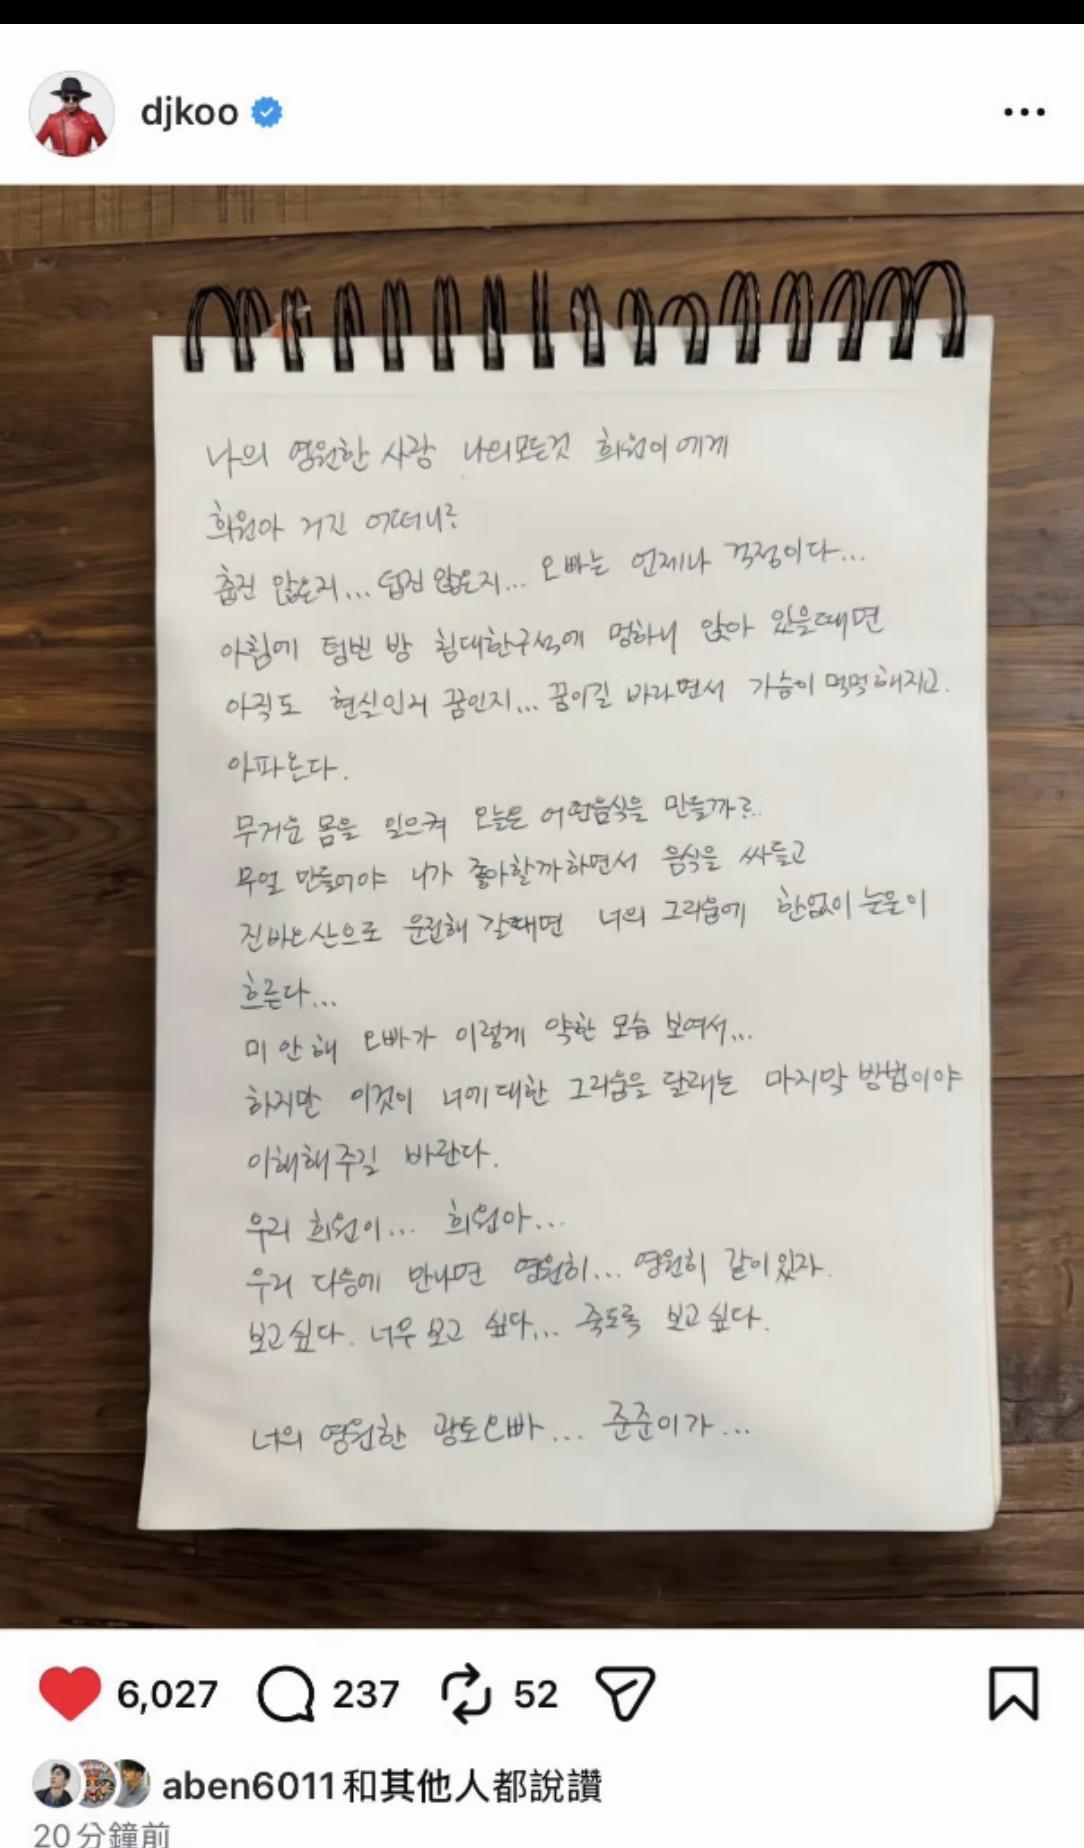 djkoo
나의 영원한 사랑 나의모든것 희원이에게
희원아 거긴 어떠니?
춥진 않은지... 덥진 않은지... 오빠는 언제나 걱정이다...
아침에 텅빈 방 침대한구석에 멍하니 앉아 있을때면
아직도 현실인지 꿈인지... 꿈이길 바라면서 가슴이 먹먹해지고.
아파온다.
무거운 몸을 일으켜 오늘은 어떤음식을 만들까?..
무얼 만들어야 니가 좋아할까하면서 음식을 싸들고
진바오산으로 운전해 갈때면 너의 그리움에 한없이 눈물이
흐른다...
미안해 오빠가 이렇게 약한 모습 보여서...
하지만 이것이 너에대한 그리움을 달래는 마지막 방법이야
이해해주길 바란다.
우리 희원이... 희원아...
우리 다음에 만나면 영원히... 영원히 같이있자.
보고싶다. 너무 보고 싶다... 죽도록 보고싶다.
너의 영원한 광토오빠... 준준이가...
6,027 237 52
aben6011和其他人都說讚
20分鐘前